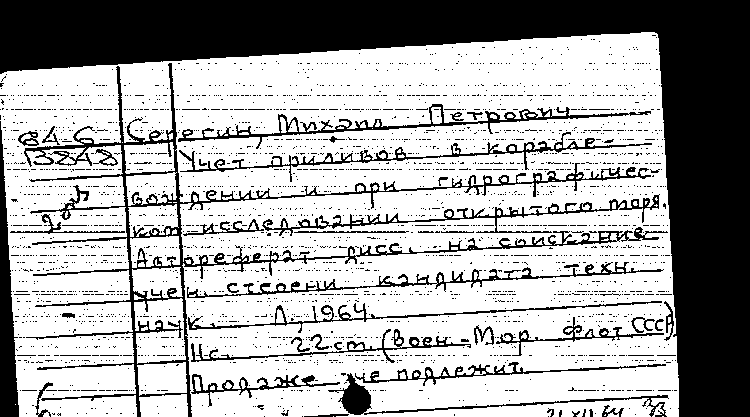 64-6
13848
Серегин, Михаил Петрович
Учет приливов в корабле-
вождении и при гидрографичес-
ком исследовании открытого моря.
Автореферат дисс. на соискание
учен. степени кандидата техн.
наук. Л., 1964.
11с. 22см. (Воен.-Мор. флот СССР)
Продаже не подлежит.